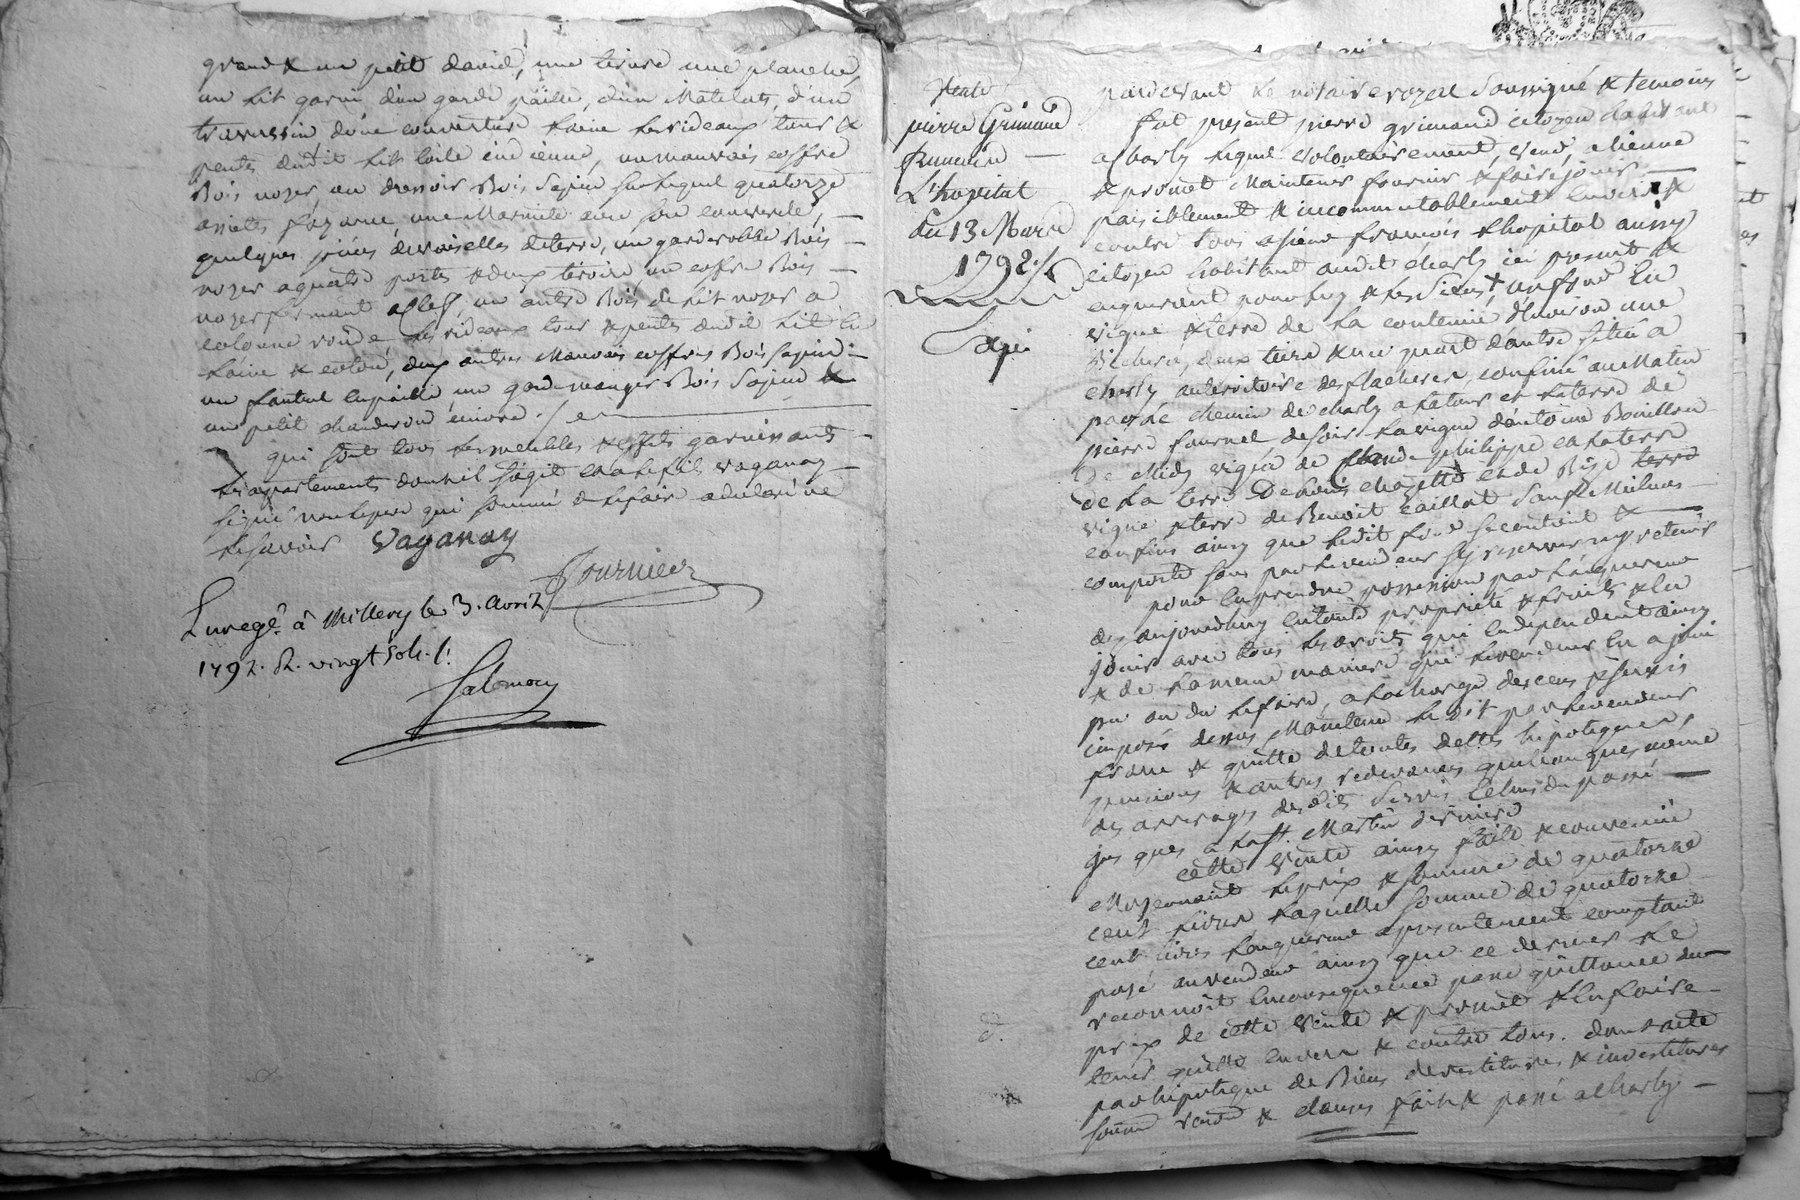 grand & un petit daviet, une tirure une planche,
un Lit garni d'un garde päille, d'un Matelats, d'un
traverssin d'une couverture Laine Les rideaux tour &
pente dudit Lit toile indienne, un mauvais coffre
Bois noyer, un dressoir Bois Sapin sur Lequel quatorze
assietes fayance, une Marmite avec son couvercle, —
quelques pieces devaiselles deterre, un garderobbe Bois —
noyer aquatre portes & deux tiroirs un coffre Bois —
noyer fermant aclef, un autre Bois de Lit noyer a
colonne ronde Les rideaux tour & pente dudit Lit en
Laine & coton, deux autres Mauvais coffres Bois Sapin
un fauteul enpaille un gardemanger Bois Sapin &
un petit chauderon cuivre ./.
qui sont tous Les meubles & effets garnissants
Les appartements dont il s'agit et a Le fils vaganay —
signé non Le pere qui sommé de Le faire a declaré ne
Le savoir Vaganay
Fournier
Enregé. à Millery le 3. Avril
1792. R. vingt Sols ./.
Salomon
Vente
pierre Grimaud
L'hopital
du 13 Mars
1792 ./.
Expé
pardevant Le notaire royal soussigné & temoins
fut present pierre grimaud citoyen habitant
acharly Lequel volontairement, vend, alienne
& promet Maintenir fournir & faire jouir —
paisiblement & incommutablement Envers &
contre tous asieur francois Lhopital aussy
citoyen habitant audit charly ici present &
acquerant pour luy & les siens + un fond En
vigne & terre de La contenue d'Environ une
Bicherée, deux tiers & un quart d'autre situé a
charly auterritoire des flacheres, confiné au Matin
par Le chemin de charly a Latour et Laterre de
pierre fournel desoir Lavigne d'antoine Bouillon
de Midy vigne de Claude philippe et Laterre
de La terre De Louis chazette et de Bize terre
vigne & terre de Benoit caillot Sauf Meilleurs —
confins ainsy que Ledit fond se contient & —
comporte sans par Levendeur s'y reserver ny retenir
pour En prendre possession par L'acquereur
dez aujourdhuy Entoute propriété & fruits & En
jouir avec tous Les droits qui Endependent ainsy
& de La meme maniere que Levendeur En a joui
pu ou du Lefaire, a La charge des cens & servis
imposés dessus, Maintenu Le dit par Levendeur
franc & quitte de toutes dettes hipoteques,
pensions & autres redevances quelconques meme
des arrerages desdits servis celuis du passé —
jus ques a La St. Martin derniere
cette Vente ainsy faite & convenüe
Moyennant Le prix & somme de quatorze
cent Livres Laquelle somme de quatorze
cent Livres Lacquereur a presentement comptant
payé auvendeur ainsy que ce dernier Le
reconnoit Enconsequence passe quittance du —
prix de cette Vente & promet & En faire —
tenir quitte envers & contre tous. dont acte
par hipoteque de Biens devestitures & investitures
soumn renon & clauses fait & passé acharly —